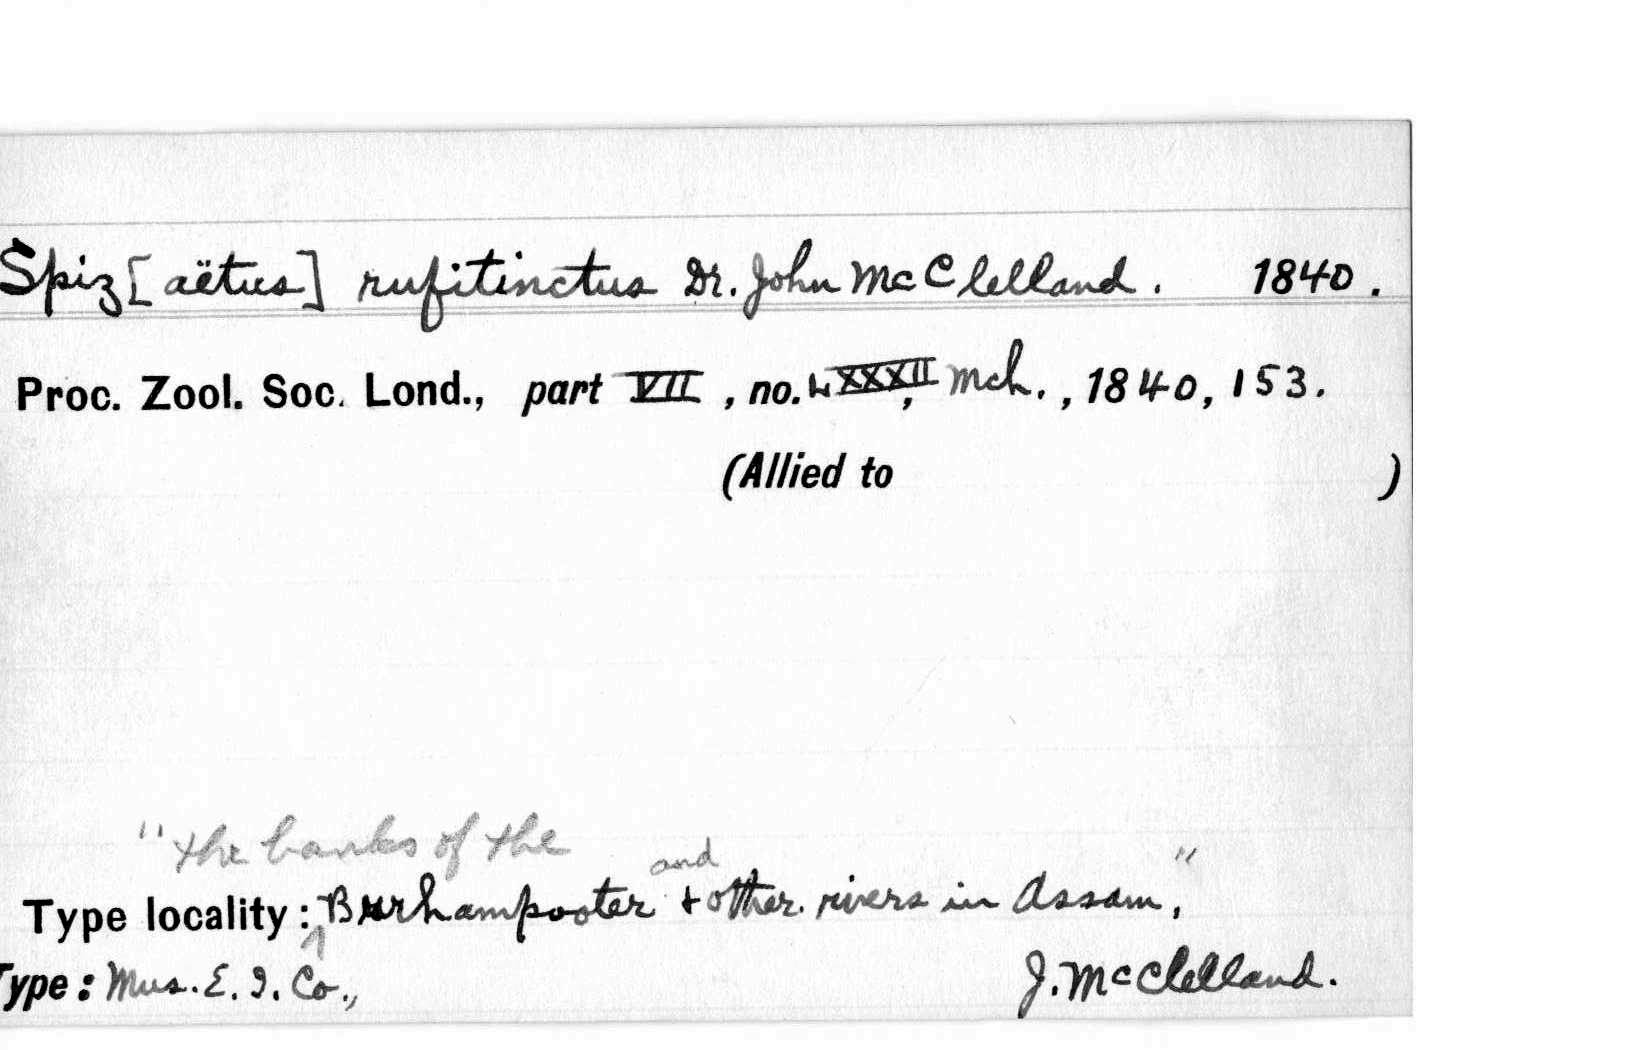 Spiz[aëtus] rufitinctus Dr. John McClelland. 1840.
Proc. Zool. Soc. Lond., part VII, no. LXXXII, Mch., 1840, 153.
(Allied to )
"the banks of the
and "
Type locality: Burhampooter + other rivers in Assam,
Type: Mus. E. I. Co., J. McClelland.